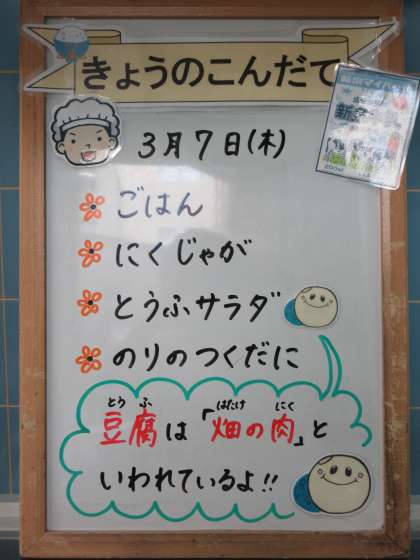 きょうのこんだて
3月7日(木)
ごはん
にくじゃが
とうふサラダ
のりのつくだに
とうふ はたけ にく
豆腐は「畑の肉」と
いわれているよ!!